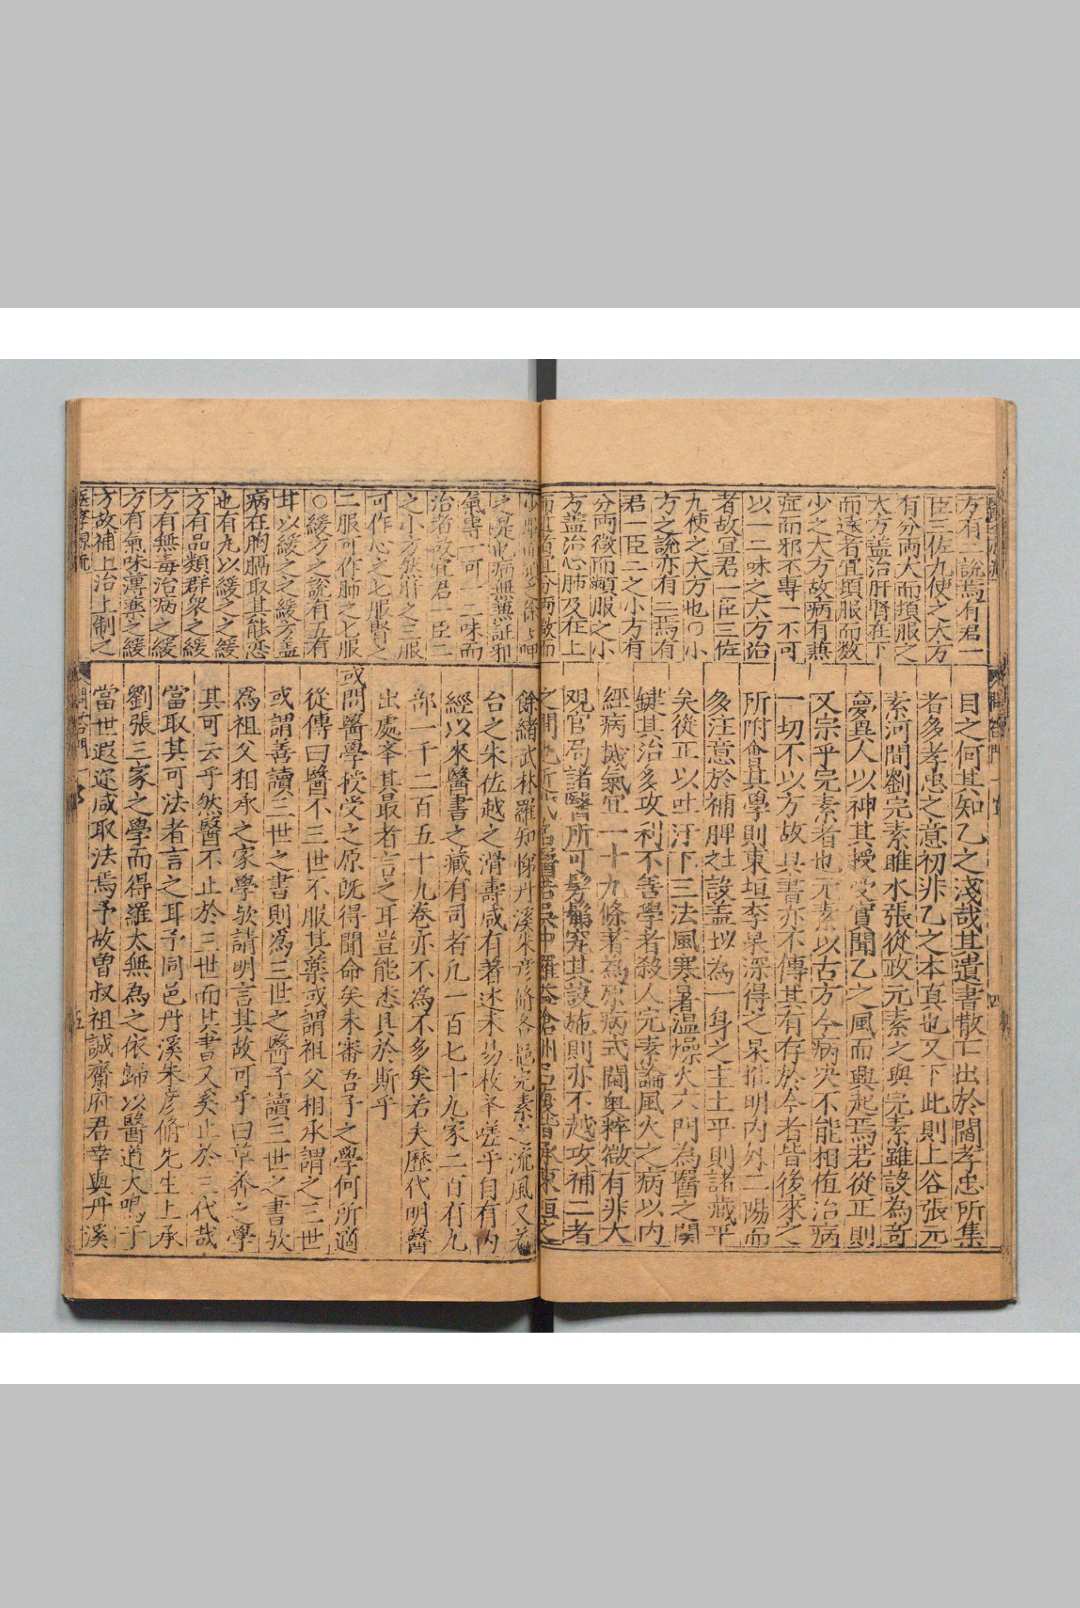 方有二說焉有君一
臣三佐九使之大方
有分兩大而頓服之
大方蓋治肝腎在下
而遠者宜頓服而數
少之大方故病有兼
症而邪不專一不可
以一二味之大方治
者故宜君一臣三佐
九使之大方也〇小
方之說亦有二焉有
君一臣二之小方有
分兩微而頻服之小
方蓋治心肺及在上
之
氣專一可一二味而
治者故宜君一臣二
之小方然肝之三服
可作心之七服腎之
二服可作肺之七服
〇緩方之說有五有
耳以緩之之緩方蓋
病在胸膈取其能恐
也有丸以緩之之緩
方有品類群衆之緩
方有無毒治病之緩
方有氣味薄藥之緩
方故補上治上制之
目之何其知乙之淺哉其遺書散亡出於閻孝忠所集
者多孝忠之意初非乙之本真也又下此則上谷張元
素河間劉完素睢水張從政元素之與完素雖設為奇
夢異人以神其授受實聞乙之風而興起焉若從正則
又宗乎完素者也元素以古方今病決不能相值治病
一切不以方故其書亦不傳其有存於今者皆後來之
所附會其學則東垣李杲深得之杲推明內外二陽而
多注意於補脾土之設蓋以為一身之主土平則諸藏平
矣從正以吐汗下三法風寒暑濕燥火六門為醫之関
鍵其治多攻利不善學者殺人完素論風火之病以內
經病機氣宜一十九條著為原病式閫奧粹微有非大
觀官局諸醫所可髣髴究其設施則亦不越攻補二者
餘緒武林羅知悌丹溪朱彦脩各
台之朱佐越之滑壽咸有著述未易枚举嗟乎自有內
經以來醫書之藏有司者凡一百七十九家二百有九
部一千二百五十九卷亦不為不多矣若夫歷代明醫
出處茲其最者言之耳豈能悉具於斯乎
或問醫學授受之原旣得聞命矣未審吾子之學何所適
從傳曰醫不三世不服其藥或謂祖父相承謂之三世
或謂善讀三世之書則為三世之醫子讀三世之書歟
為祖父相承之家學歟請明言其故可乎曰草莽之學
其可云乎然醫不止於三世而其書又奚止於三代哉
當取其可法者言之耳予同邑丹溪朱彦脩先生上承
劉張三家之學而得羅太無為之依歸以醫道大鳴于
當世遐邇咸取法焉予故曾叔祖誠齋府君幸與丹溪